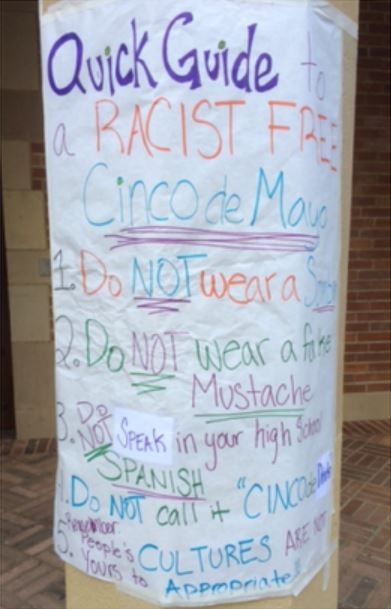 Quick Guide to
a RACIST FREE
Cinco de Mayo
1. Do NOT wear a
2. Do NOT wear a fake
Mustache
3. Do NOT SPEAK in your high School
SPANISH
4. Do NOT call it "CINCO de
5. Remember: People's CULTURES ARE NOT
Yours to Appropriate!!